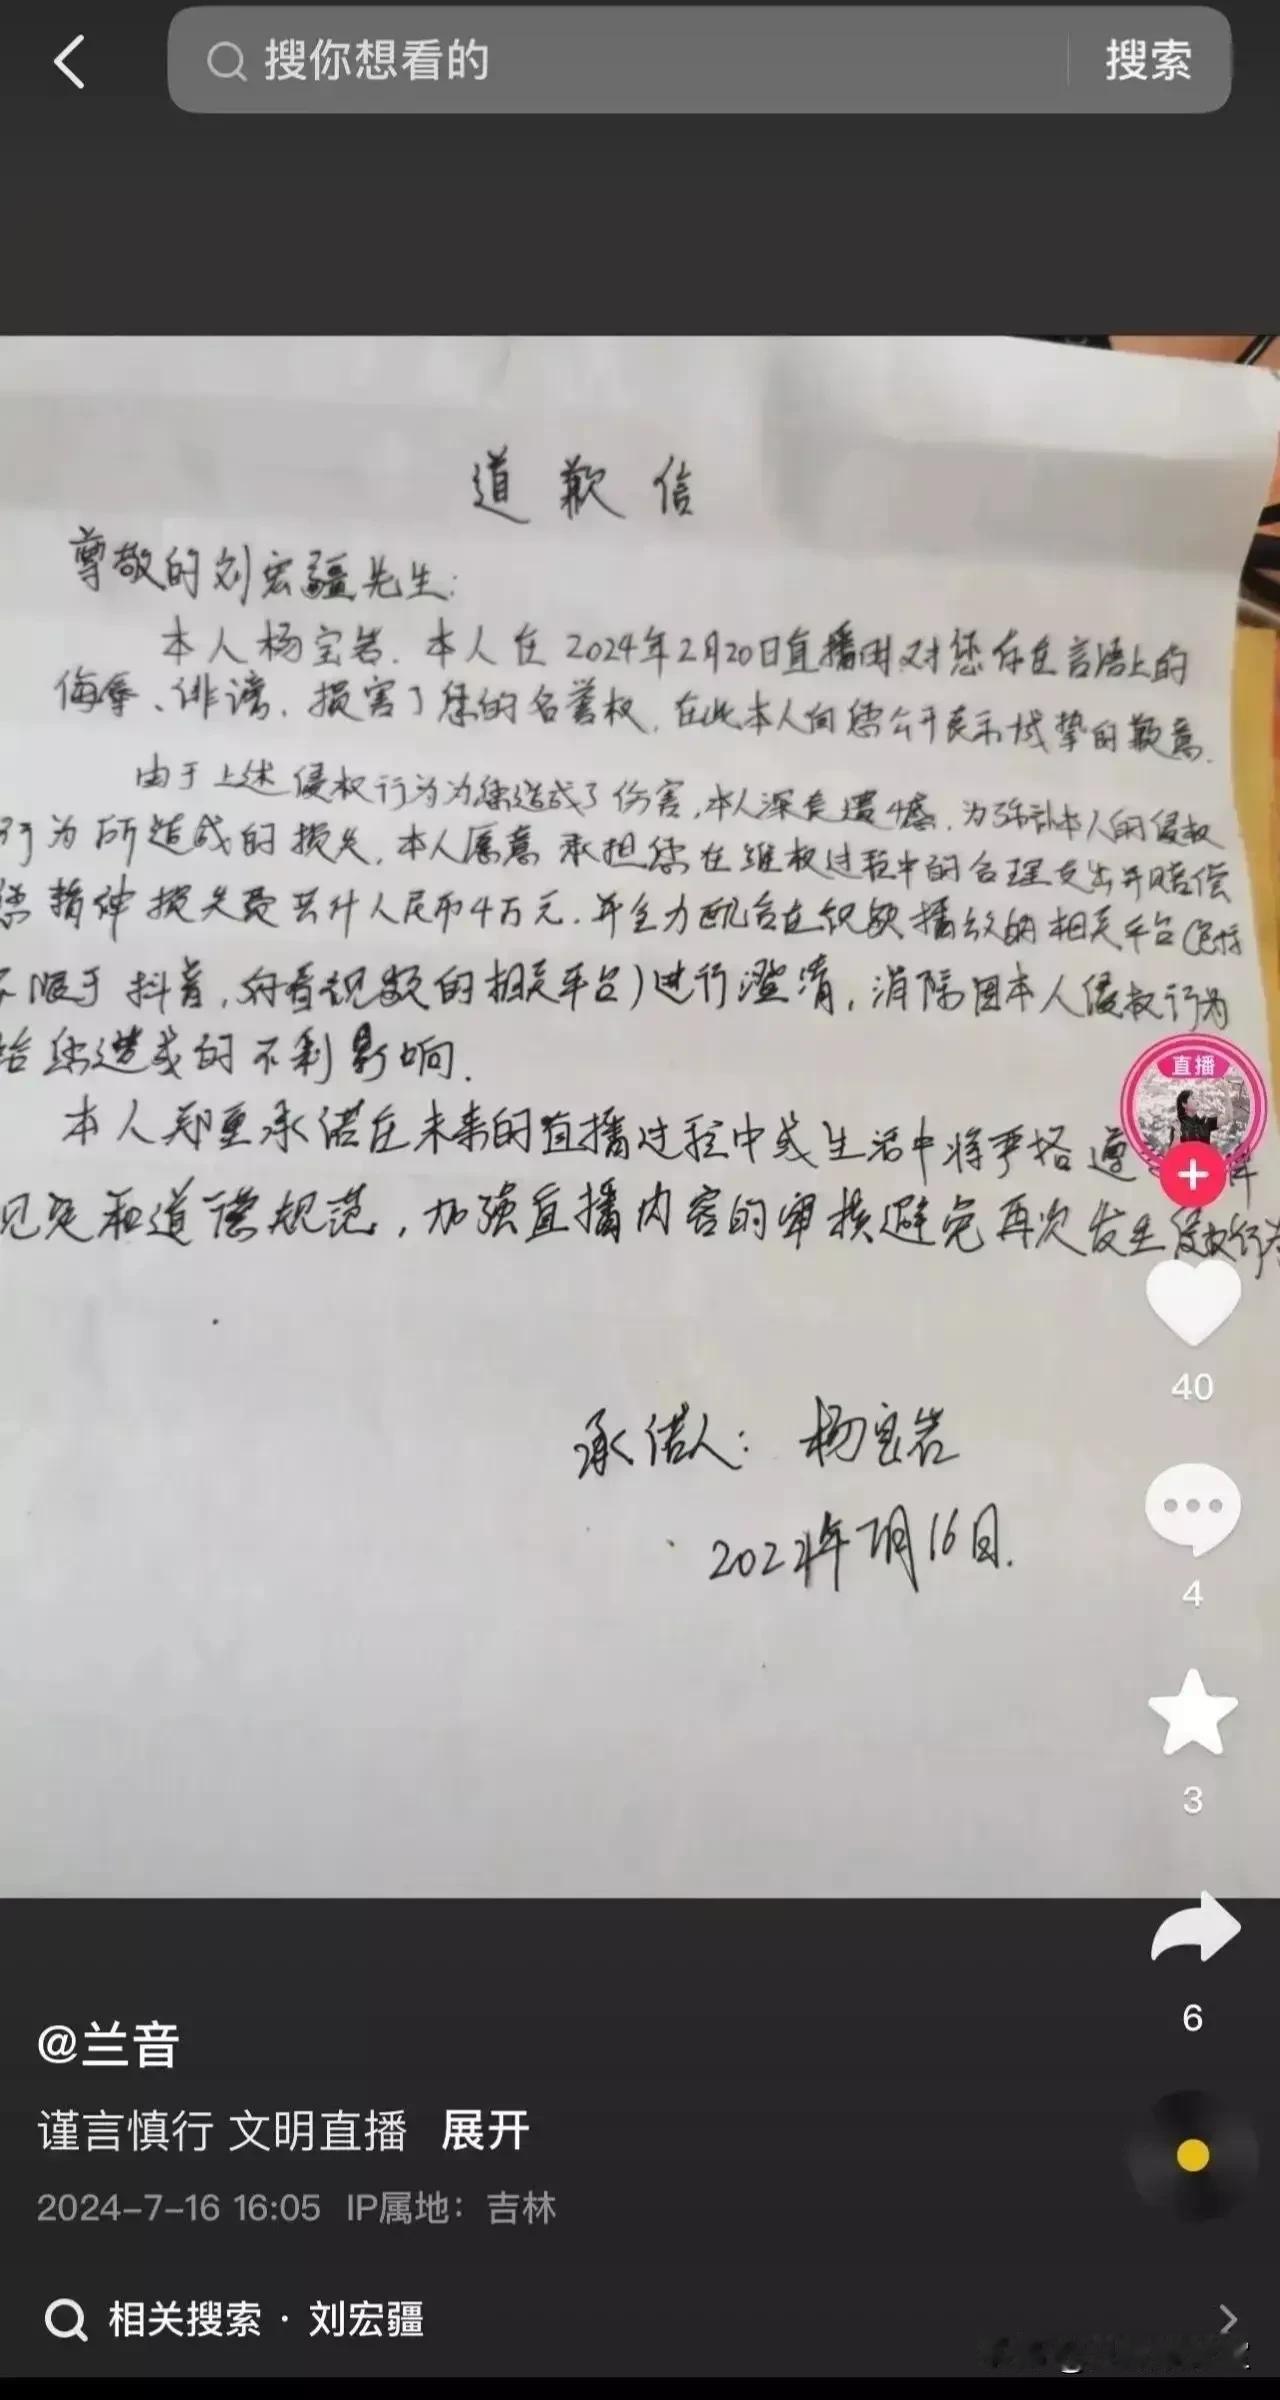 搜你想看的 搜索
道歉信
尊敬的刘宏疆先生:
本人杨宝岩.本人在2024年2月20日直播时对您存在言语上的
侮辱、诽谤.损害了您的名誉权.在此本人向您公开表示诚挚的歉意.
由于上述侵权行为为您造成了伤害,本人深表遗憾.为弥补本人的侵权
行为所造成的损失.本人愿意承担您在维权过程中的合理支出并赔偿
您精神损失费共计人民币4万元.并全力配合在视频播放的相关平台(包括
不限于抖音,好看视频的相关平台)进行澄清,消除因本人侵权行为
给您造成的不利影响.
本人郑重承诺在未来的直播过程中或生活中将严格遵
规定和道德规范,加强直播内容的审核避免再次发生侵权行为
承诺人:杨宝岩
2024年7月16日.
直播
40
4
3
6
@兰音
谨言慎行 文明直播 展开
2024-7-16 16:05 IP属地:吉林
相关搜索·刘宏疆